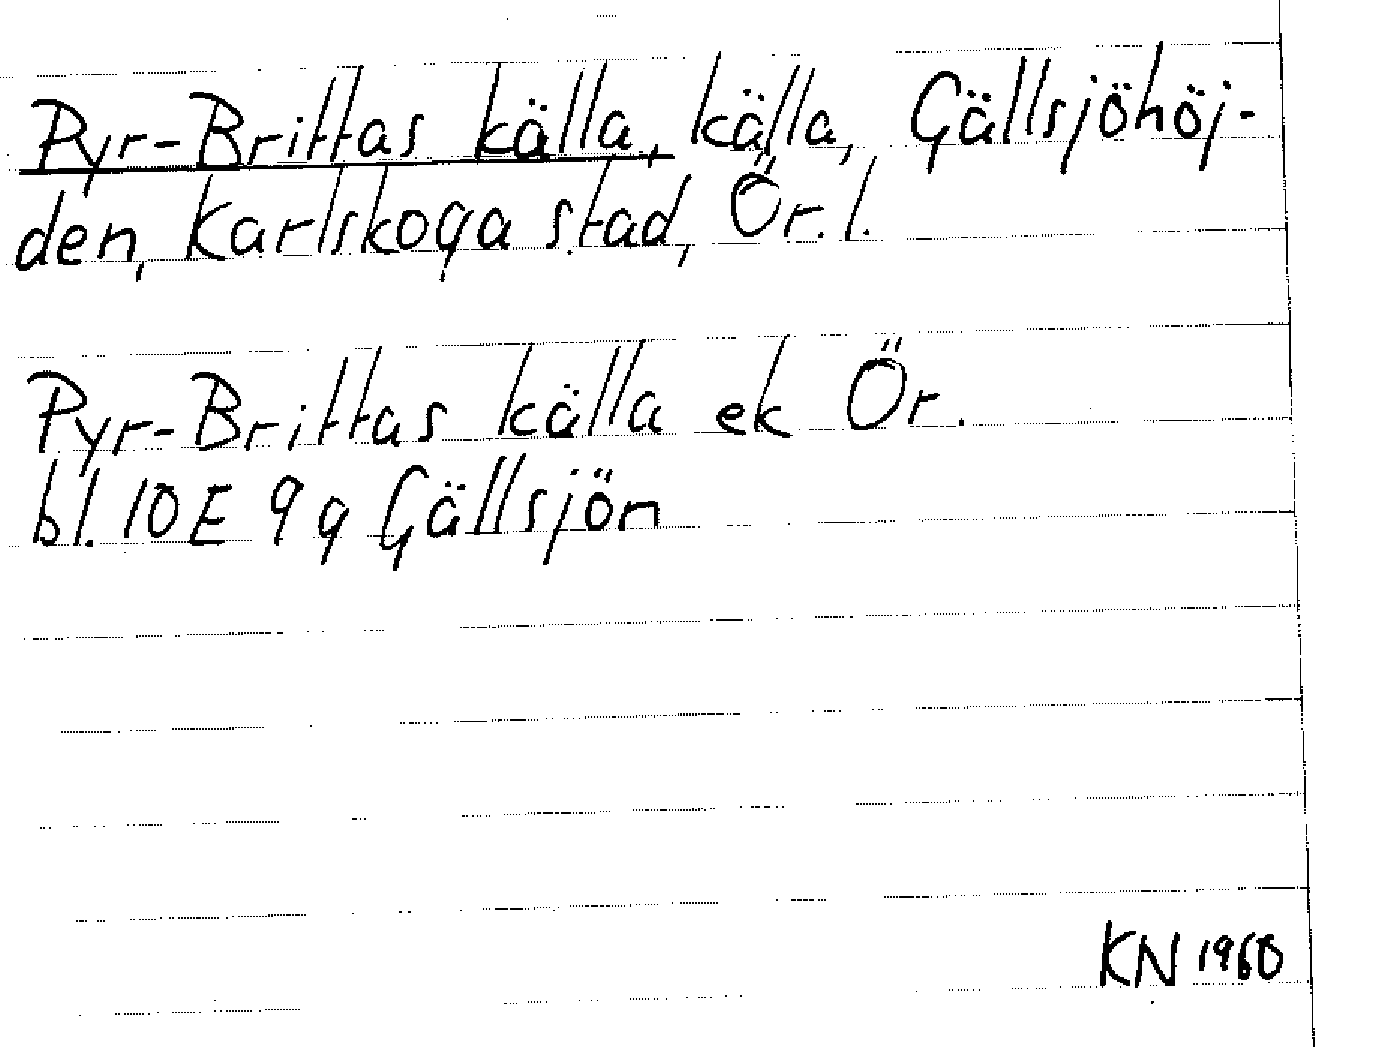 Pyr-Brittas källa, källa, Gällsjöhöj-
den, Karlskoga stad, Ör. l.
Pyr-Brittas källa ek Ör.
bl. 10E 9g Gällsjön
KN 1960